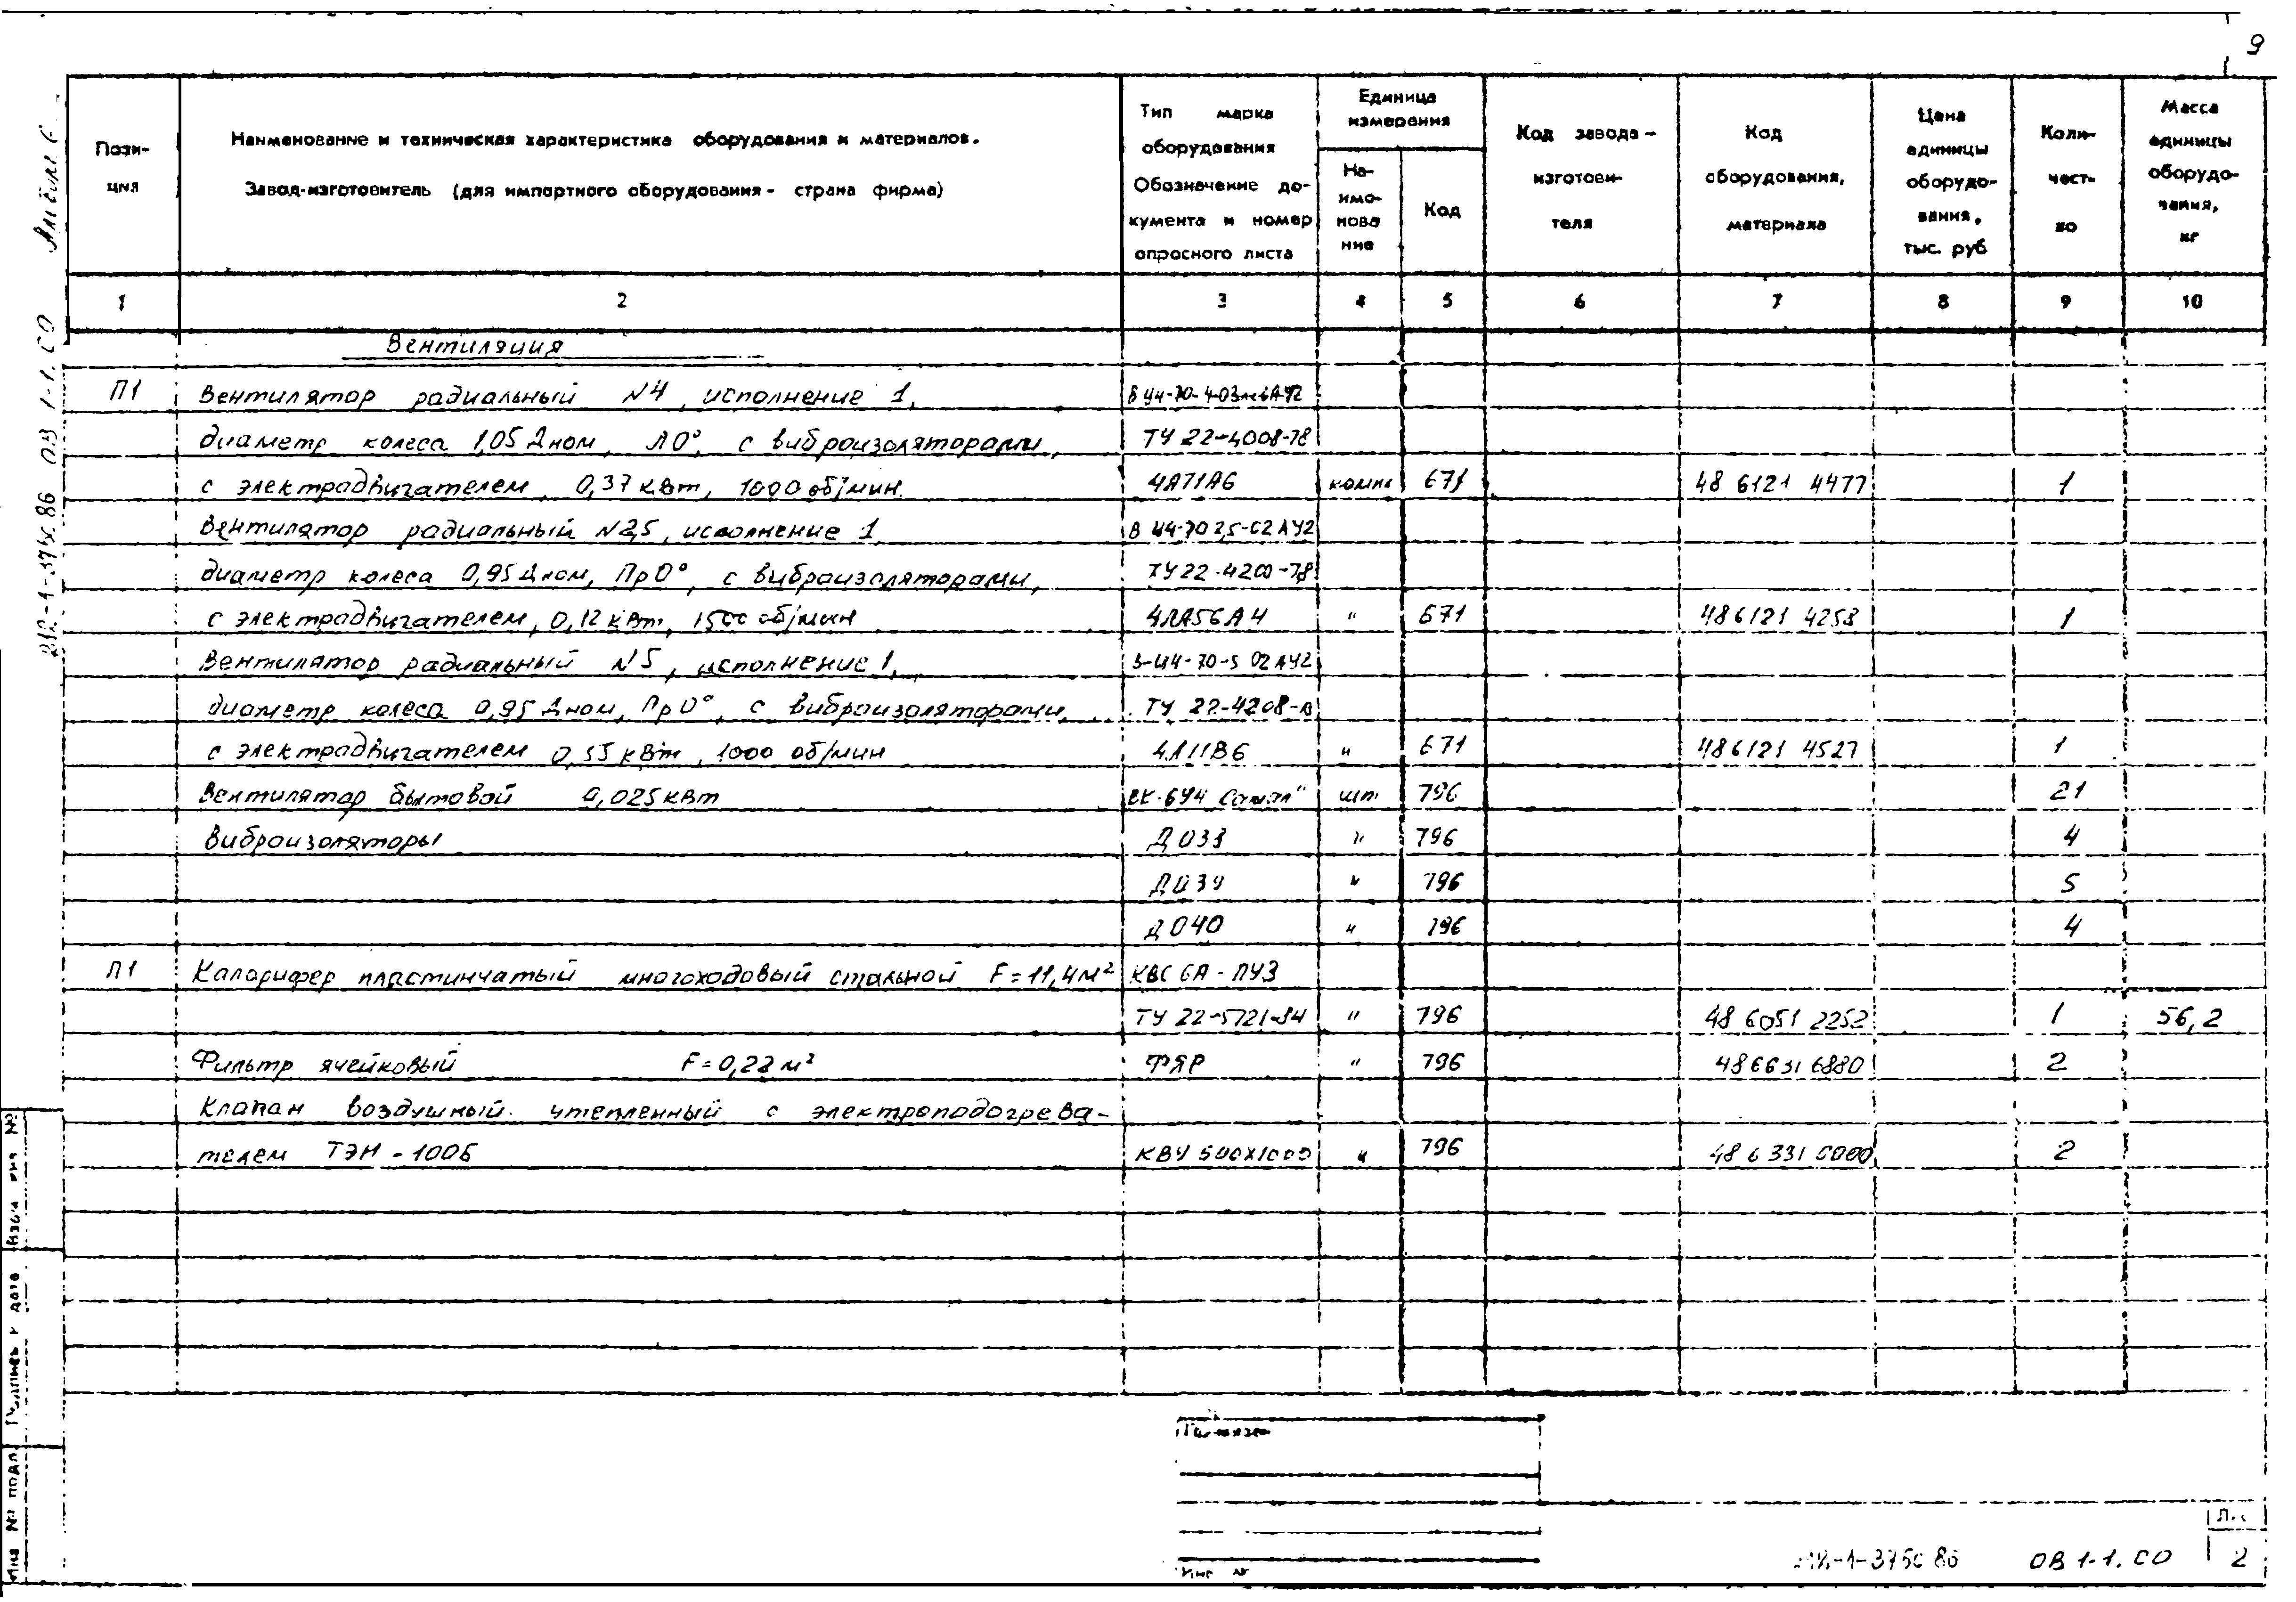 9
Пози-
ция
Наименование и техническая характеристика оборудования и материалов.
Завод-изготовитель (для импортного оборудования - страна фирма)
Тип марка
оборудования
Обозначение до-
кумента и номер
опросного листа
Единица
измерения
На-
име-
нова
ние
Код
Код завода -
изготови-
теля
Код
оборудования,
материала
Цена
единицы
оборудо-
вания,
тыс. руб
Коли-
чест-
во
Масса
единицы
оборудо-
вания,
кг
1 2 3 4 5 6 7 8 9 10
Вентиляция
П1 Вентилятор радиальный N4, исполнение 1,
диаметр колеса 1,05 Дном, Л0°, с виброизоляторами, ТУ 22-4008-78
с электродвигателем 0,37 кВт, 1000 об/мин. 4А71А6 компл 671 48 6121 4477 1
Вентилятор радиальный N2,5, исполнение 1 В Ц4-70 2,5-02АУ2
диаметр колеса 0,95 Дном, Пр0°, с виброизоляторами, ТУ 22-4200-78
с электродвигателем, 0,12 кВт, 1500 об/мин 4АА56А4 " 671 486121 4253 1
Вентилятор радиальный N5, исполнение 1, В-Ц4-70-5 02АУ2
диаметр колеса 0,95 Дном, Пр0°, с виброизоляторами, ТУ 22-4208-
с электродвигателем 0,55 кВт, 1000 об/мин " 671 486121 4527 1
Вентилятор бытовой 0,025 кВт шт. 796 21
Виброизоляторы Д033 " 796 4
Д039 " 796 5
Д040 " 796 4
П1 Калорифер пластинчатый многоходовый стальной F=11,4м² КВС 6А-ПУ3
ТУ 22-5721-84 " 796 48 6051 2252 1 56,2
Фильтр ячейковый F=0,22 м² ФЯР " 796 486631 6880 2
Клапан воздушный утепленный с электроподогрева-
телем ТЭН-100Б КВУ 600х1000 " 796 48 6331 0000 2
Инв № подл
Подпись и дата
Взам инв №
Инв №
86 ОВ 1-1.СО
2